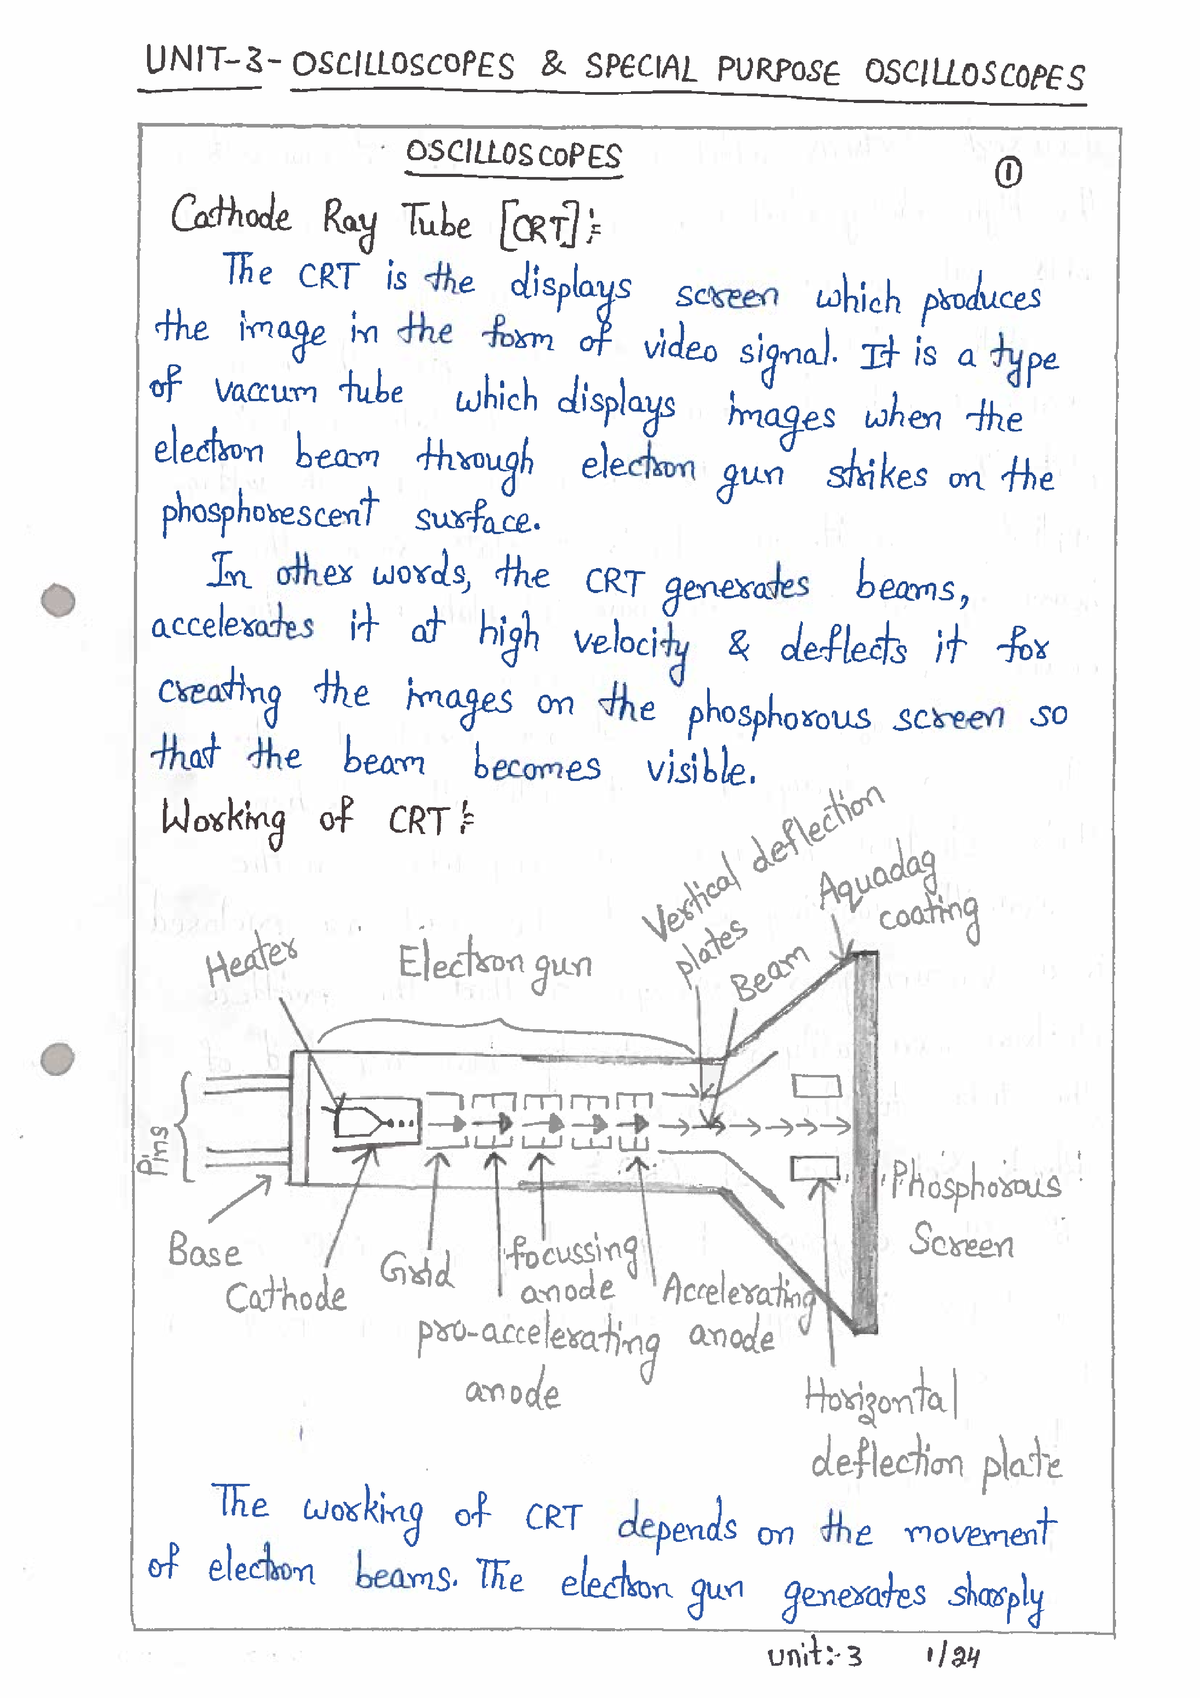 UNIT-3- OSCILLOSCOPES & SPECIAL PURPOSE OSCILLOSCOPES
OSCILLOSCOPES
1
Cathode Ray Tube [CRT]:-
The CRT is the displays screen which produces
the image in the form of video signal. It is a type
of vaccum tube which displays images when the
electron beam through electron gun strikes on the
phosphorescent surface.
In other words, the CRT generates beams,
accelerates it at high velocity & deflects it for
creating the images on the phosphorous screen so
that the beam becomes visible.
Working of CRT:-
Vertical deflection
plates
Aquadag
coating
Heater
Electron gun
Beam
Pins
Phosphorous
Screen
Base
Cathode
Grid
focussing
anode
Accelerating
anode
pro-accelerating
anode
Horizontal
deflection plate
The working of CRT depends on the movement
of electron beams. The electron gun generates sharply
unit:- 3 1/24